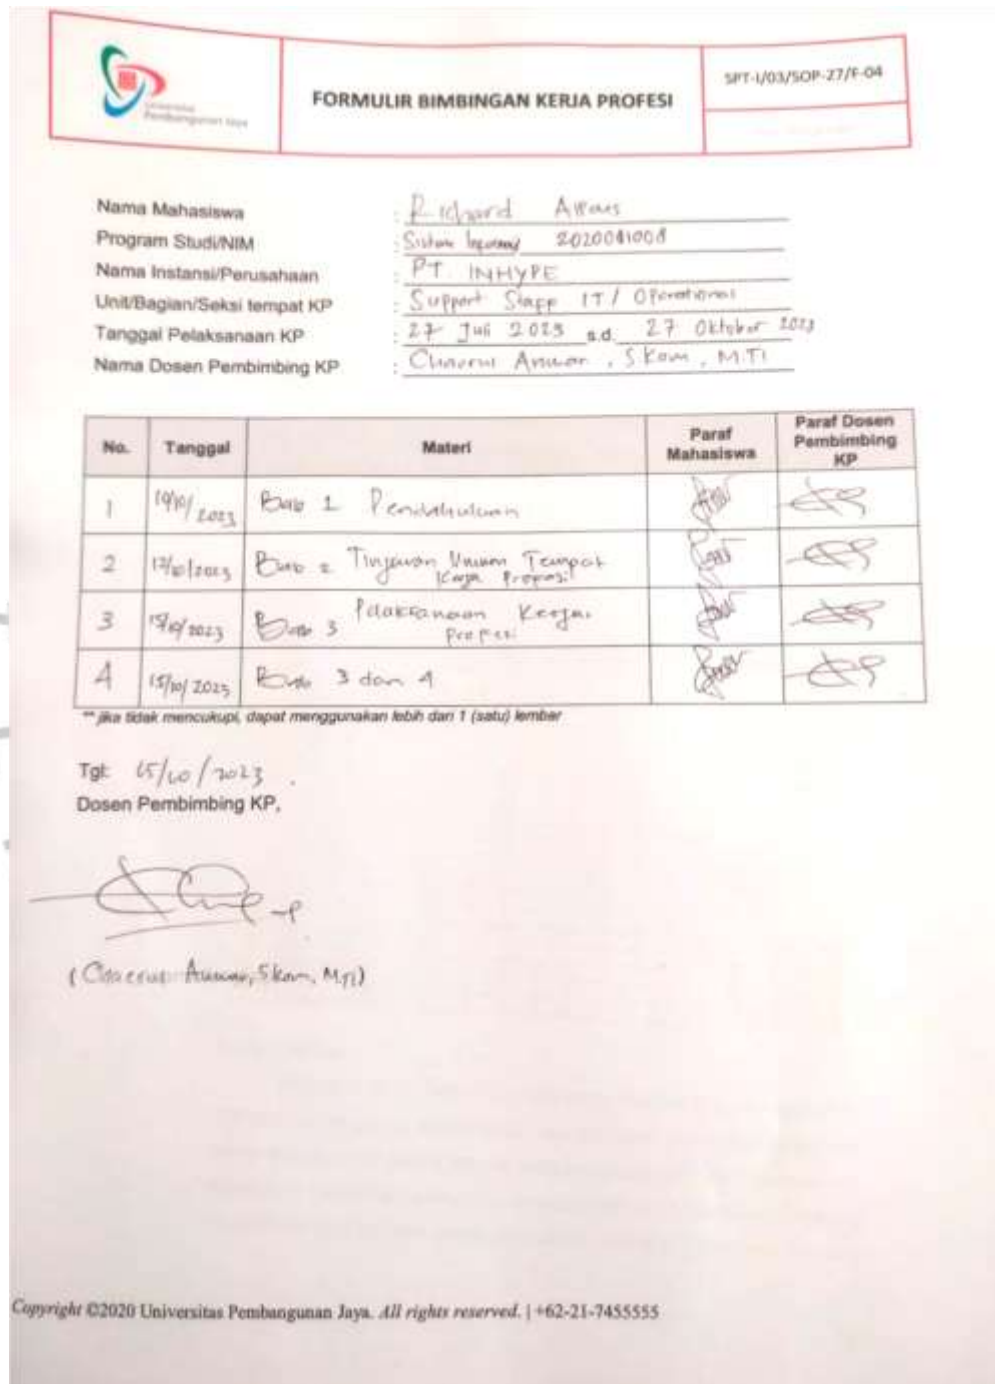 Universitas
Pembangunan Jaya
FORMULIR BIMBINGAN KERJA PROFESI
SPT-I/03/SOP-27/F-04
Nama Mahasiswa : Richard
Program Studi/NIM : Sistem Informasi
Nama Instansi/Perusahaan : PT INHYPE
Unit/Bagian/Seksi tempat KP : Support Staff IT / Operational
Tanggal Pelaksanaan KP : 27 Juli 2023 s.d. 27 Oktober 2023
Nama Dosen Pembimbing KP : Anwar, SKom, M.TI
No. Tanggal Materi Paraf Mahasiswa Paraf Dosen Pembimbing KP
1 /10/2023 Bab 1 Pendahuluan
2 /10/2023 Bab 2 Tinjauan Umum Tempat Kerja Profesi
3 /10/2023 Bab 3 Pelaksanaan Kerja Profesi
4 15/10/2023 Bab 3 dan 4
** jika tidak mencukupi, dapat menggunakan lebih dari 1 (satu) lembar
Tgl: 15/10/2023.
Dosen Pembimbing KP,
( Anwar, SKom, MTI)
Copyright ©2020 Universitas Pembangunan Jaya. All rights reserved. | +62-21-7455555